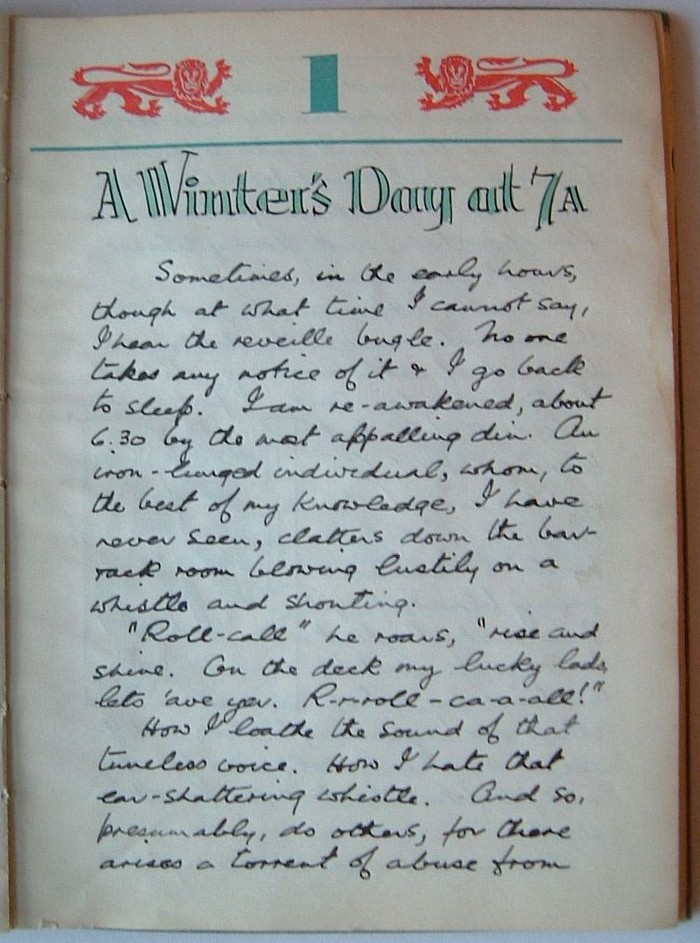 1
A Winter's Day at 7A
Sometimes, in the early hours,
though at what time I cannot say,
I hear the reveille bugle. No one
takes any notice of it & I go back
to sleep. I am re-awakened, about
6.30 by the most appalling din. An
iron-lunged individual, whom, to
the best of my knowledge, I have
never seen, clatters down the bar-
rack room blowing lustily on a
whistle and shouting.
"Roll-call" he roars, "rise and
shine. On the deck my lucky lads,
lets 'ave yer. R-r-roll-ca-a-all!"
How I loathe the sound of that
tuneless voice. How I hate that
ear-shattering whistle. And so,
presumably, do others, for there
arises a torrent of abuse from